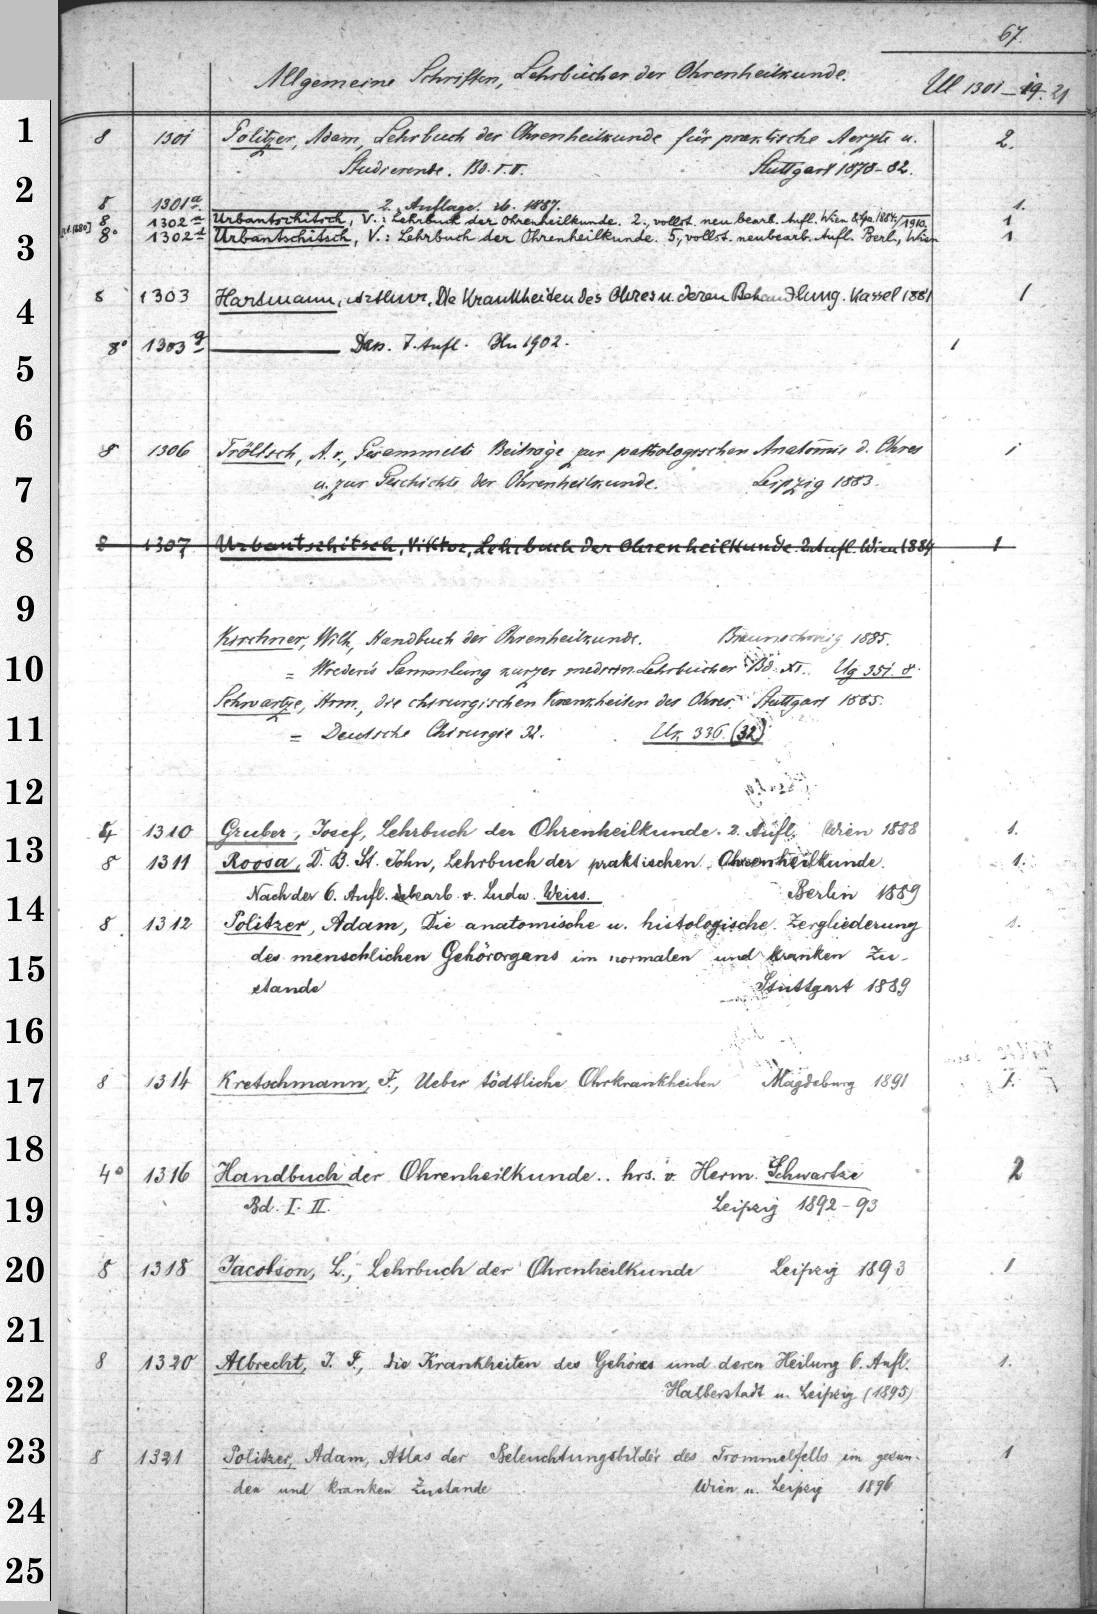 67.
Allgemeine Schriften, Lehrbücher der Ohrenheilkunde. Ul 1301 - 19. 21
1
8 1301 Politzer, Adam, Lehrbuch der Ohrenheilkunde für praktische Aerzte u. 2.
Studierende. Bd. I. II. Stuttgart 1878-82.
2
8 1301a 2. Auflage. ib. 1887. 1.
8 1302a Urbantschitsch, V.: Lehrbuch der Ohrenheilkunde. 2., vollst. neu bearb. Aufl. Wien 1884. 1
8° 1302d Urbantschitsch, V.: Lehrbuch der Ohrenheilkunde. 5., vollst. neubearb. Aufl. Berl., Wien 1910. 1
3
8 1303 Hartmann, Arthur, Die Krankheiten des Ohres u. deren Behandlung. Kassel 1881 1
4
8° 1303g Dass. 7. Aufl. Bln 1902. 1
5
6
8 1306 Tröltsch, A. v., Gesammelte Beiträge zur pathologischen Anatomie d. Ohres 1
u. zur Geschichte der Ohrenheilkunde. Leipzig 1883.
7
8 8 1307 Urbantschitsch, Viktor, Lehrbuch der Ohrenheilkunde. 2. Aufl. Wien 1884 1
9
Kirchner, Wilh., Handbuch der Ohrenheilkunde. Braunschweig 1885.
10 = Wreden's Sammlung kurzer medizin. Lehrbücher Bd. XI. Ug 351. 8.
Schwartze, Hrm., die chirurgischen Krankheiten des Ohres. Stuttgart 1885.
11 = Deutsche Chirurgie 32. Ur. 336. (32)
12
4 1310 Gruber, Josef, Lehrbuch der Ohrenheilkunde. 2. Aufl. Wien 1888 1.
13
8 1311 Roosa, D. B. St. John, Lehrbuch der praktischen Ohrenheilkunde. 1.
Nach der 6. Aufl. v. Ludw. Weiss. Berlin 1889
14
8 1312 Politzer, Adam, Die anatomische u. histologische Zergliederung 1.
des menschlichen Gehörorgans im normalen und kranken Zu-
15
stande Stuttgart 1889
16
8 1314 Kretschmann, F., Ueber tödtliche Ohrkrankheiten Magdeburg 1891 1.
17
18
4° 1316 Handbuch der Ohrenheilkunde.. hrs. v. Herm. Schwartze 2
19 Bd. I. II. Leipzig 1892-93
20 8 1318 Jacobson, L., Lehrbuch der Ohrenheilkunde Leipzig 1893 1
21
8 1320 Albrecht, J. F., die Krankheiten des Gehöres und deren Heilung 6. Aufl. 1.
22 Halberstadt u. Leipzig (1895)
23 8 1321 Politzer, Adam, Atlas der Beleuchtungsbilder des Trommelfells im gesun- 1
den und kranken Zustande Wien u. Leipzig 1896
24
25